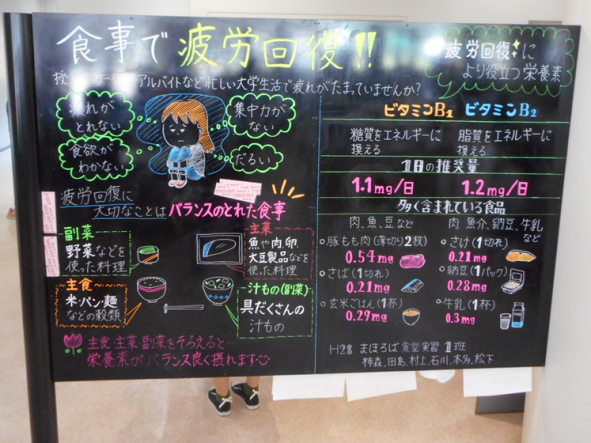 食事で疲労回復!!
サークル、アルバイトなど忙しい大学生活で疲れがたまっていませんか?
疲れが
とれない
集中力が
ない
食欲が
わかない
だるい
疲労回復に
大切なことは バランスのとれた食事
副菜
野菜などを
使った料理
主菜
魚や肉、卵
大豆製品などを
使った料理
主食
米・パン・麺
などの穀類
汁もの(副菜)
具だくさんの
汁もの
主食、主菜、副菜をそろえると
栄養素がバランス良く摂れます
疲労回復に
より役立つ栄養素
ビタミンB1
ビタミンB2
糖質をエネルギーに
換える
脂質をエネルギーに
換える
1日の推奨量
1.1mg/日
1.2mg/日
多く含まれている食品
肉、魚、豆など
肉、魚介、納豆、牛乳
など
・豚もも肉(薄切り2枚)
0.54mg
・さけ(1切れ)
0.21mg
・さば(1切れ)
0.21mg
・納豆(1パック)
0.28mg
・玄米ごはん(1杯)
0.29mg
・牛乳(1杯)
0.3mg
H28 まほろば食堂実習 1班
柿森、田島、村上、石川、本多、松下